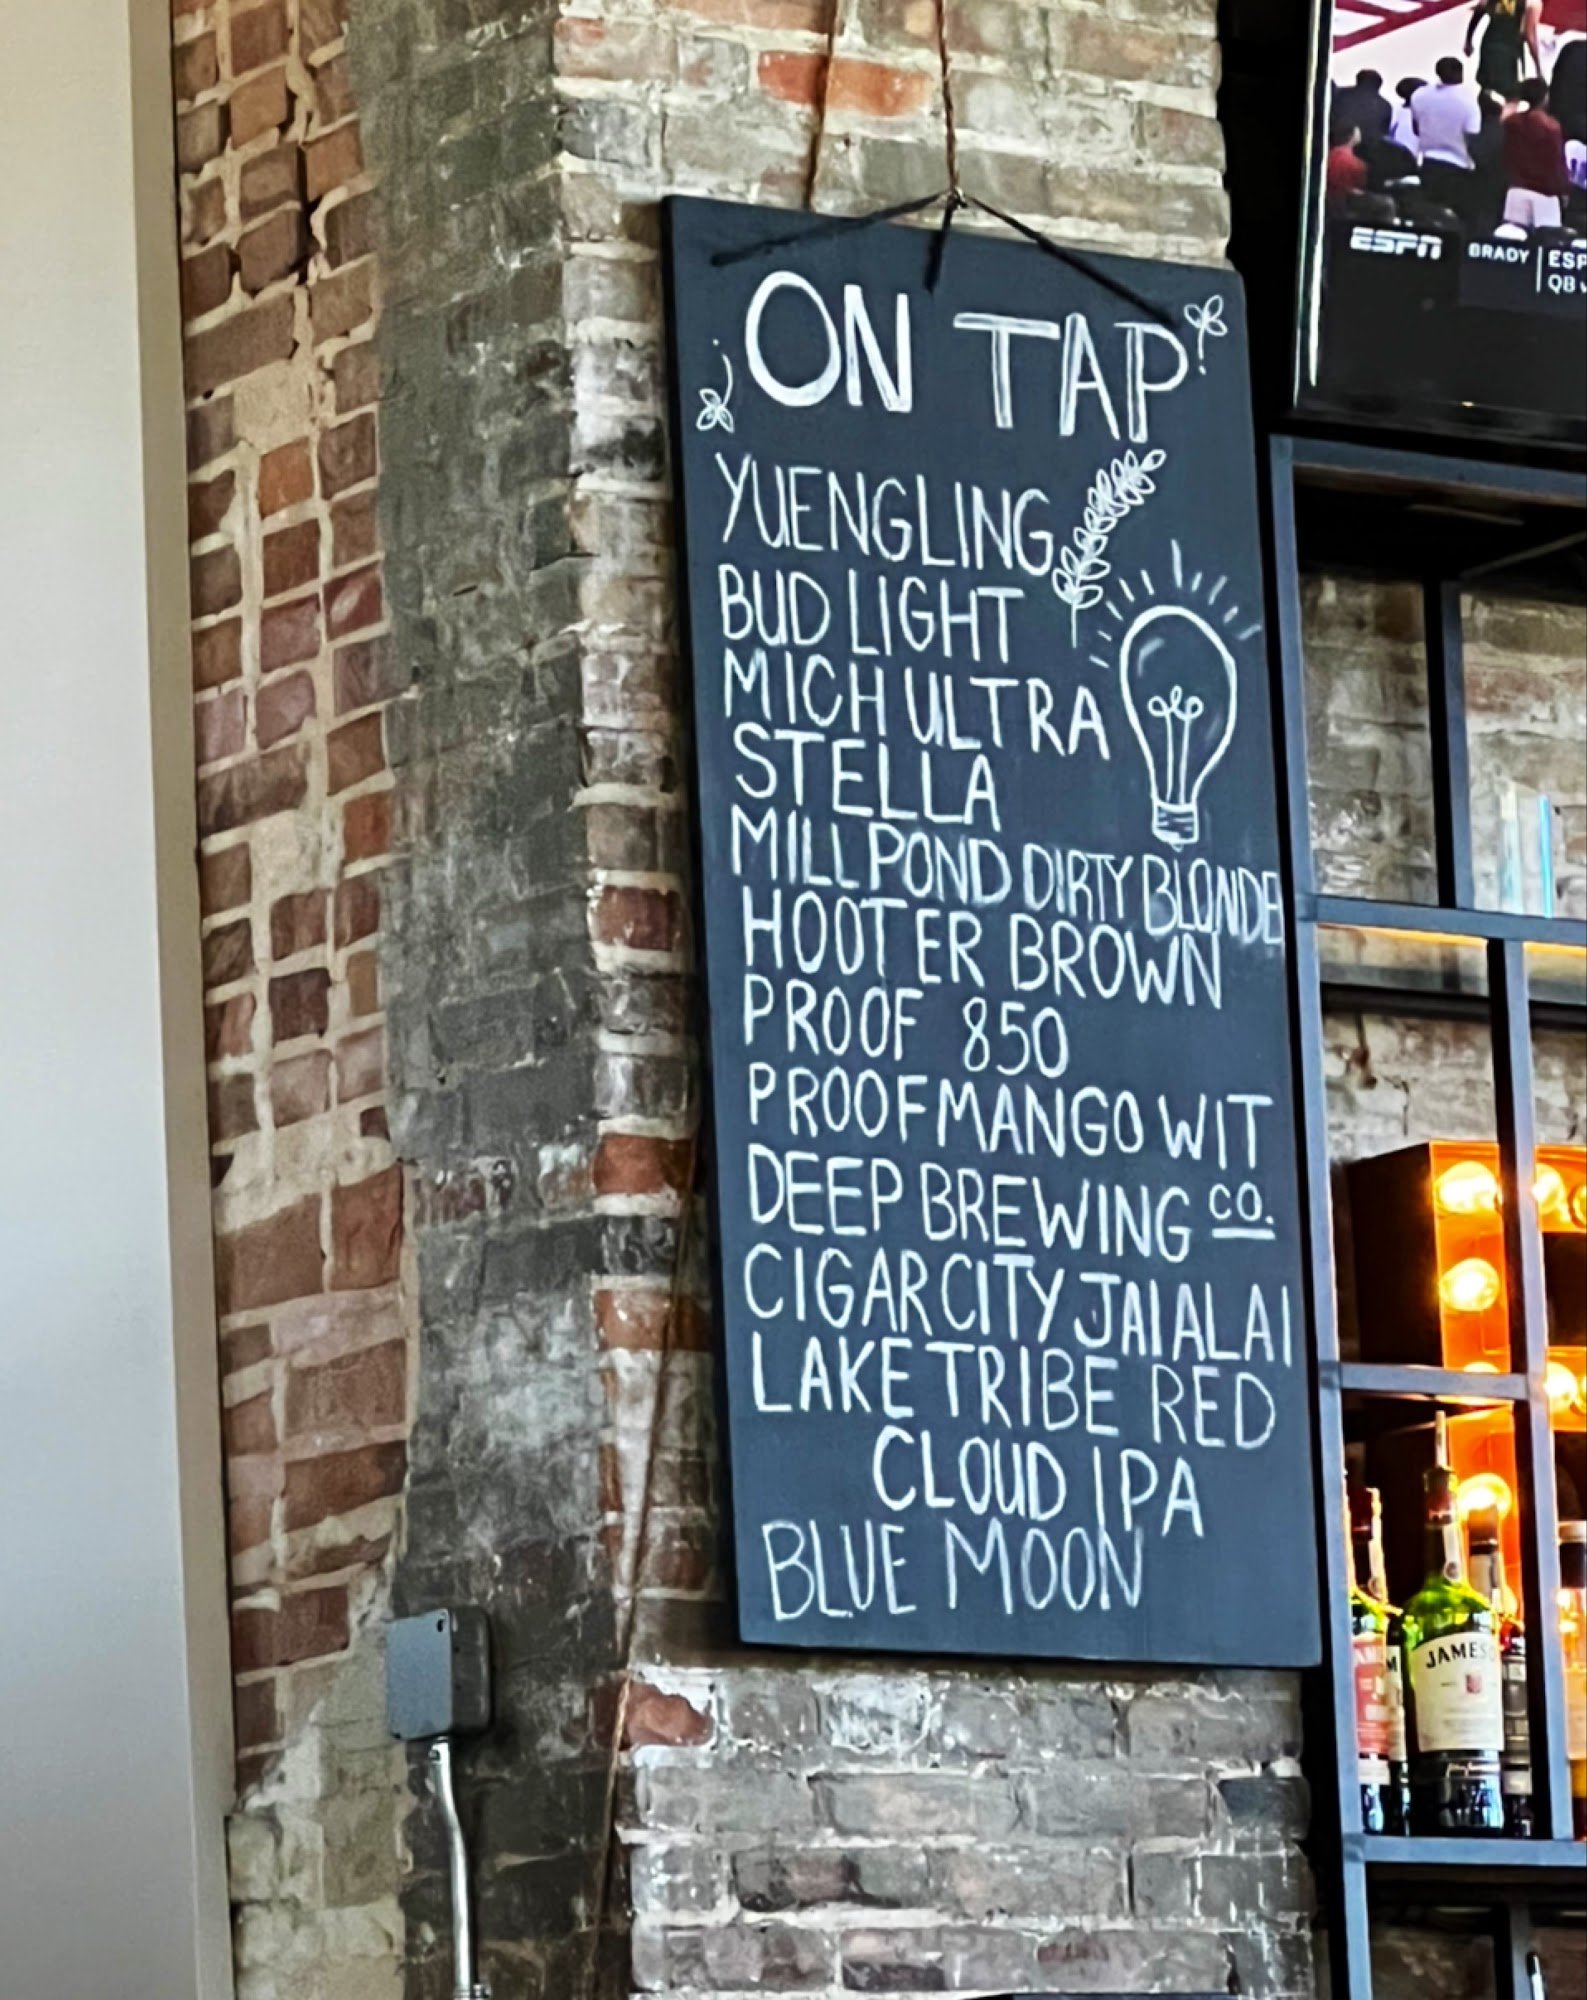 ON TAP
YUENGLING
BUD LIGHT
MICH ULTRA
STELLA
MILLPOND DIRTY BLONDE
HOOTER BROWN
PROOF 850
PROOF MANGO WIT
DEEP BREWING CO.
CIGAR CITY JAI ALAI
LAKE TRIBE RED
CLOUD IPA
BLUE MOON
ESPN
BRADY
ESP
QB
JAMES